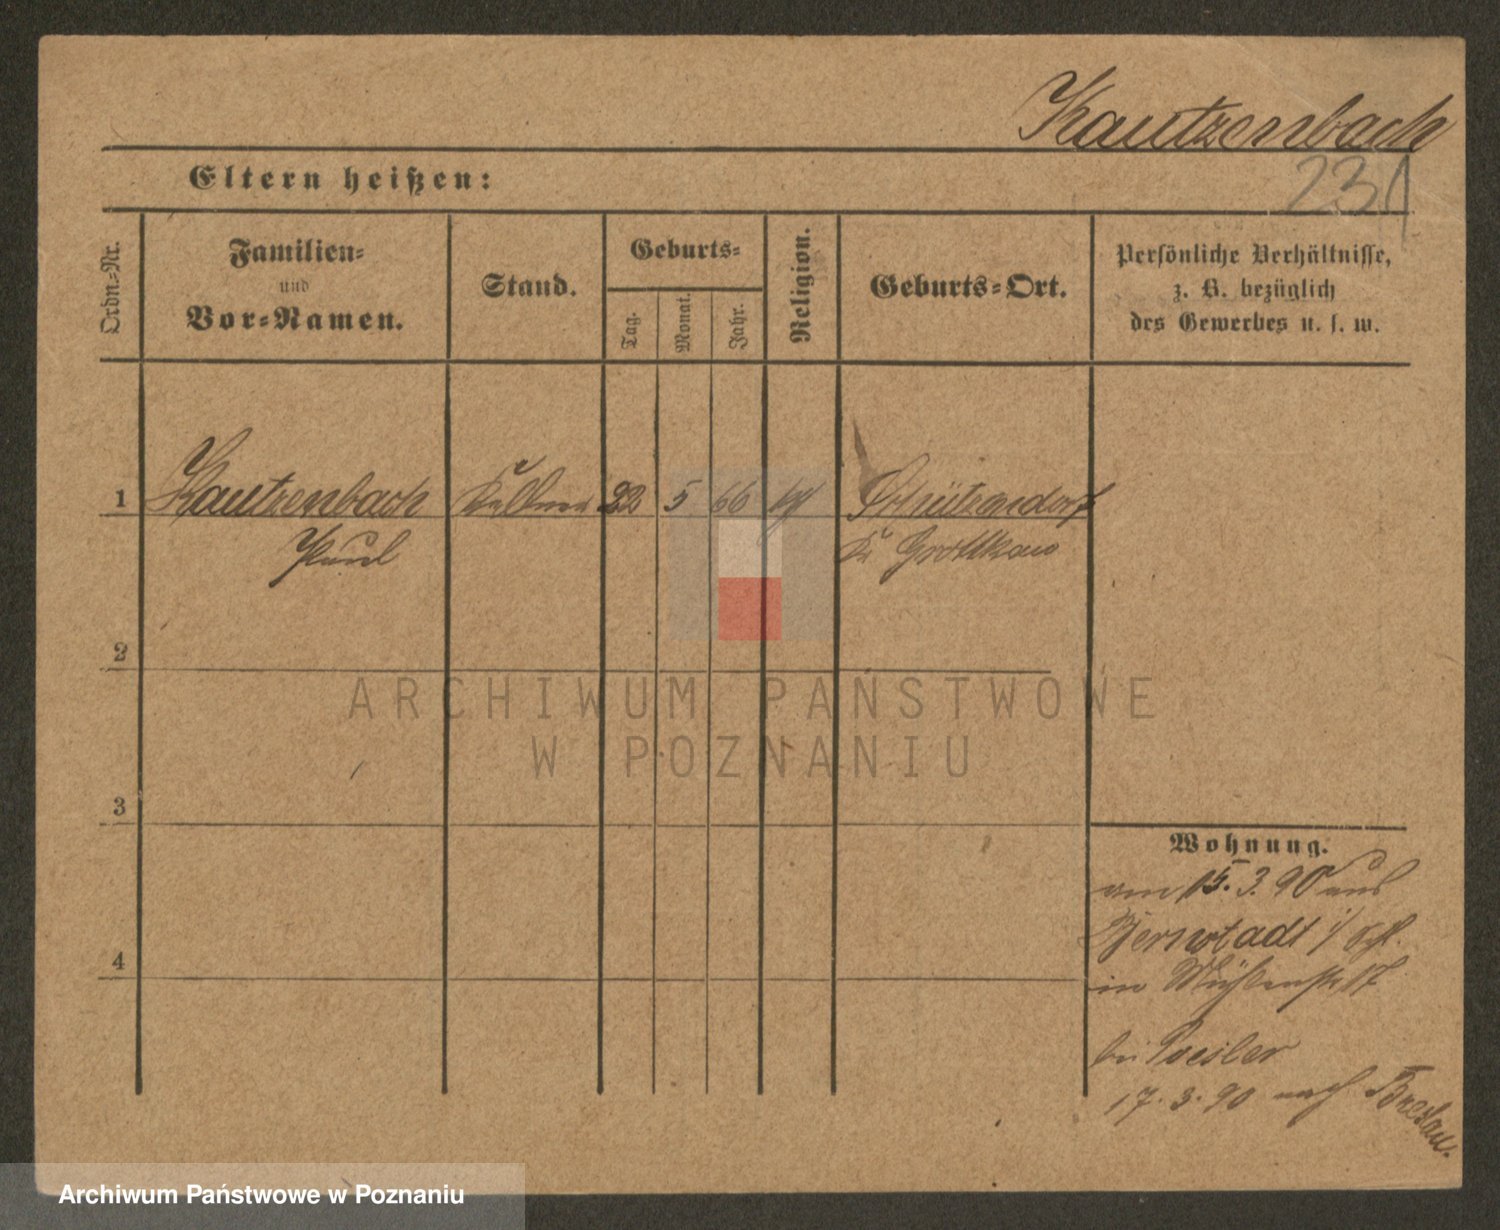 Kautzenbach
231
Eltern heißen:
Ordn.-Nr.
Familien-
und
Vor-Namen.
Stand.
Geburts-
Tag.
Monat.
Jahr.
Religion.
Geburts-Ort.
Persönliche Verhältnisse,
z. B. bezüglich
des Gewerbes u. s. w.
1 Kautzenbach Kellner 22 5 66 kth Schützendorf
Paul Kr Grottkau
2
3
4
ARCHIWUM PAŃSTWOWE
W POZNANIU
Wohnung.
am 15.3.90 aus
Bernstadt i/ Schl.
in Mühlenstr 17
bei
17.3.90 nach Breslau.
Archiwum Państwowe w Poznaniu